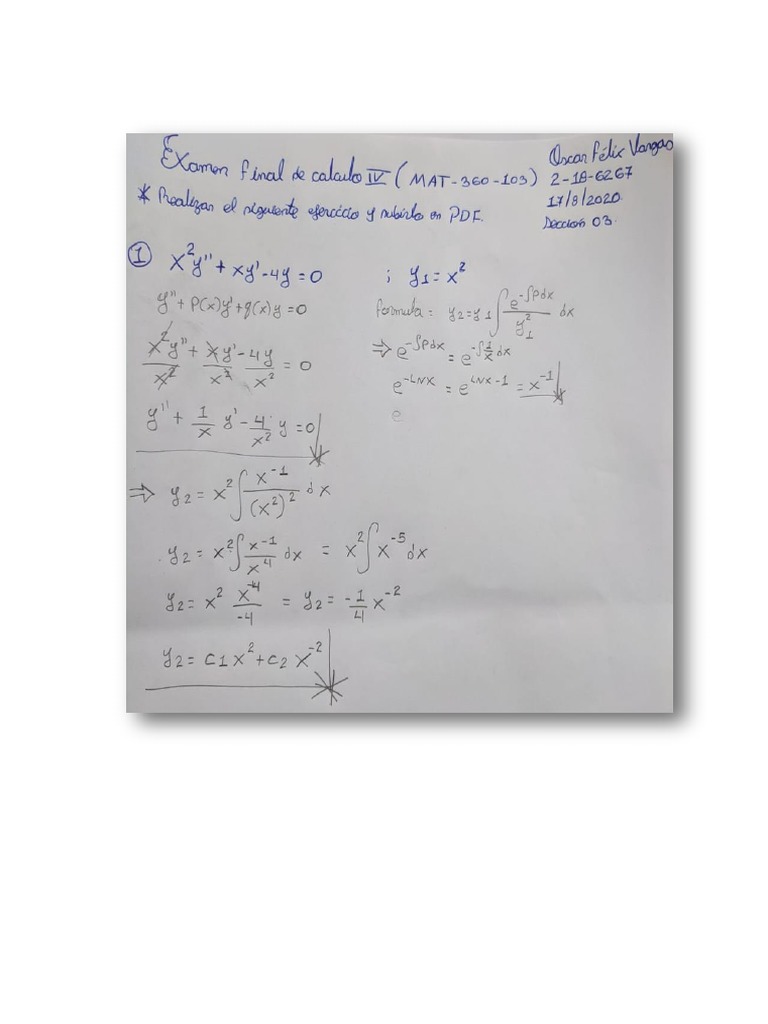 Examen final de calculo IV (MAT-360-103)
Oscar Félix Vargas
2-18-6267
17/8/2020
Sección 03.
* Realizar el siguiente ejercicio y subirlo en PDF.
① x²y'' + xy' - 4y = 0 ; y1 = x²
y'' + P(x)y' + q(x)y = 0
formula: y2 = y1 ∫ e^-∫Pdx / y1² dx
x²y''/x² + xy'/x² - 4y/x² = 0
⇒ e^-∫Pdx = e^-∫1/x dx
e^-LNX = e^LNX-1 = x^-1
y'' + 1/x y' - 4/x² y = 0
e
⇒ y2 = x² ∫ x^-1 / (x²)² dx
y2 = x² ∫ x^-1 / x^4 dx = x² ∫ x^-5 dx
y2 = x² x^-4 / -4 = y2 = -1/4 x^-2
y2 = C1 x² + C2 x^-2